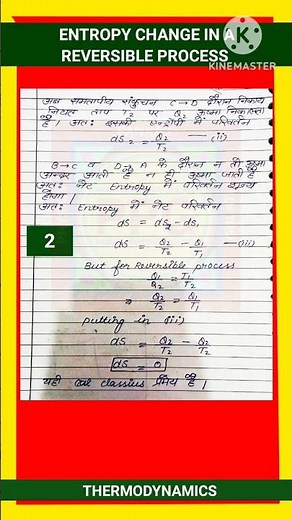 ENTROPY CHANGE IN A
REVERSIBLE PROCESS
KINEMASTER
अब समतापीय संकुचन C → D दौरान निकाय
नियत ताप T₂ पर Q₂ ऊष्मा निकालता
है। अतः इसकी एन्ट्रोपी में परिवर्तन
dS₂ = Q₂/T₂ — (ii)
B → C व D → A के दौरान न तो ऊष्मा
अन्दर आती है न ही ऊष्मा जाती है
अतः नेट Entropy में परिवर्तन शून्य
होगा।
अतः Entropy में नेट परिवर्तन
dS = dS₂ - dS₁
dS = Q₂/T₂ - Q₁/T₁ — (iii)
But for Reversible process
Q₁/Q₂ = T₁/T₂
Q₂/T₂ = Q₁/T₁
putting in (iii)
dS = Q₂/T₂ - Q₂/T₂
dS = 0
यही classius प्रमेय है।
2
THERMODYNAMICS